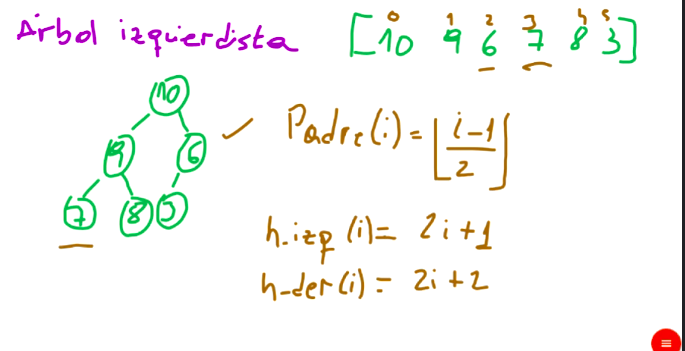 Arbol izquierdista [10 9 6 7 8 3]
0 1 2 3 4 5
10
9 6
7 8 3
Padre(i) = ⌊i-1/2⌋
h-izq (i) = 2i+1
h-der(i) = 2i+2